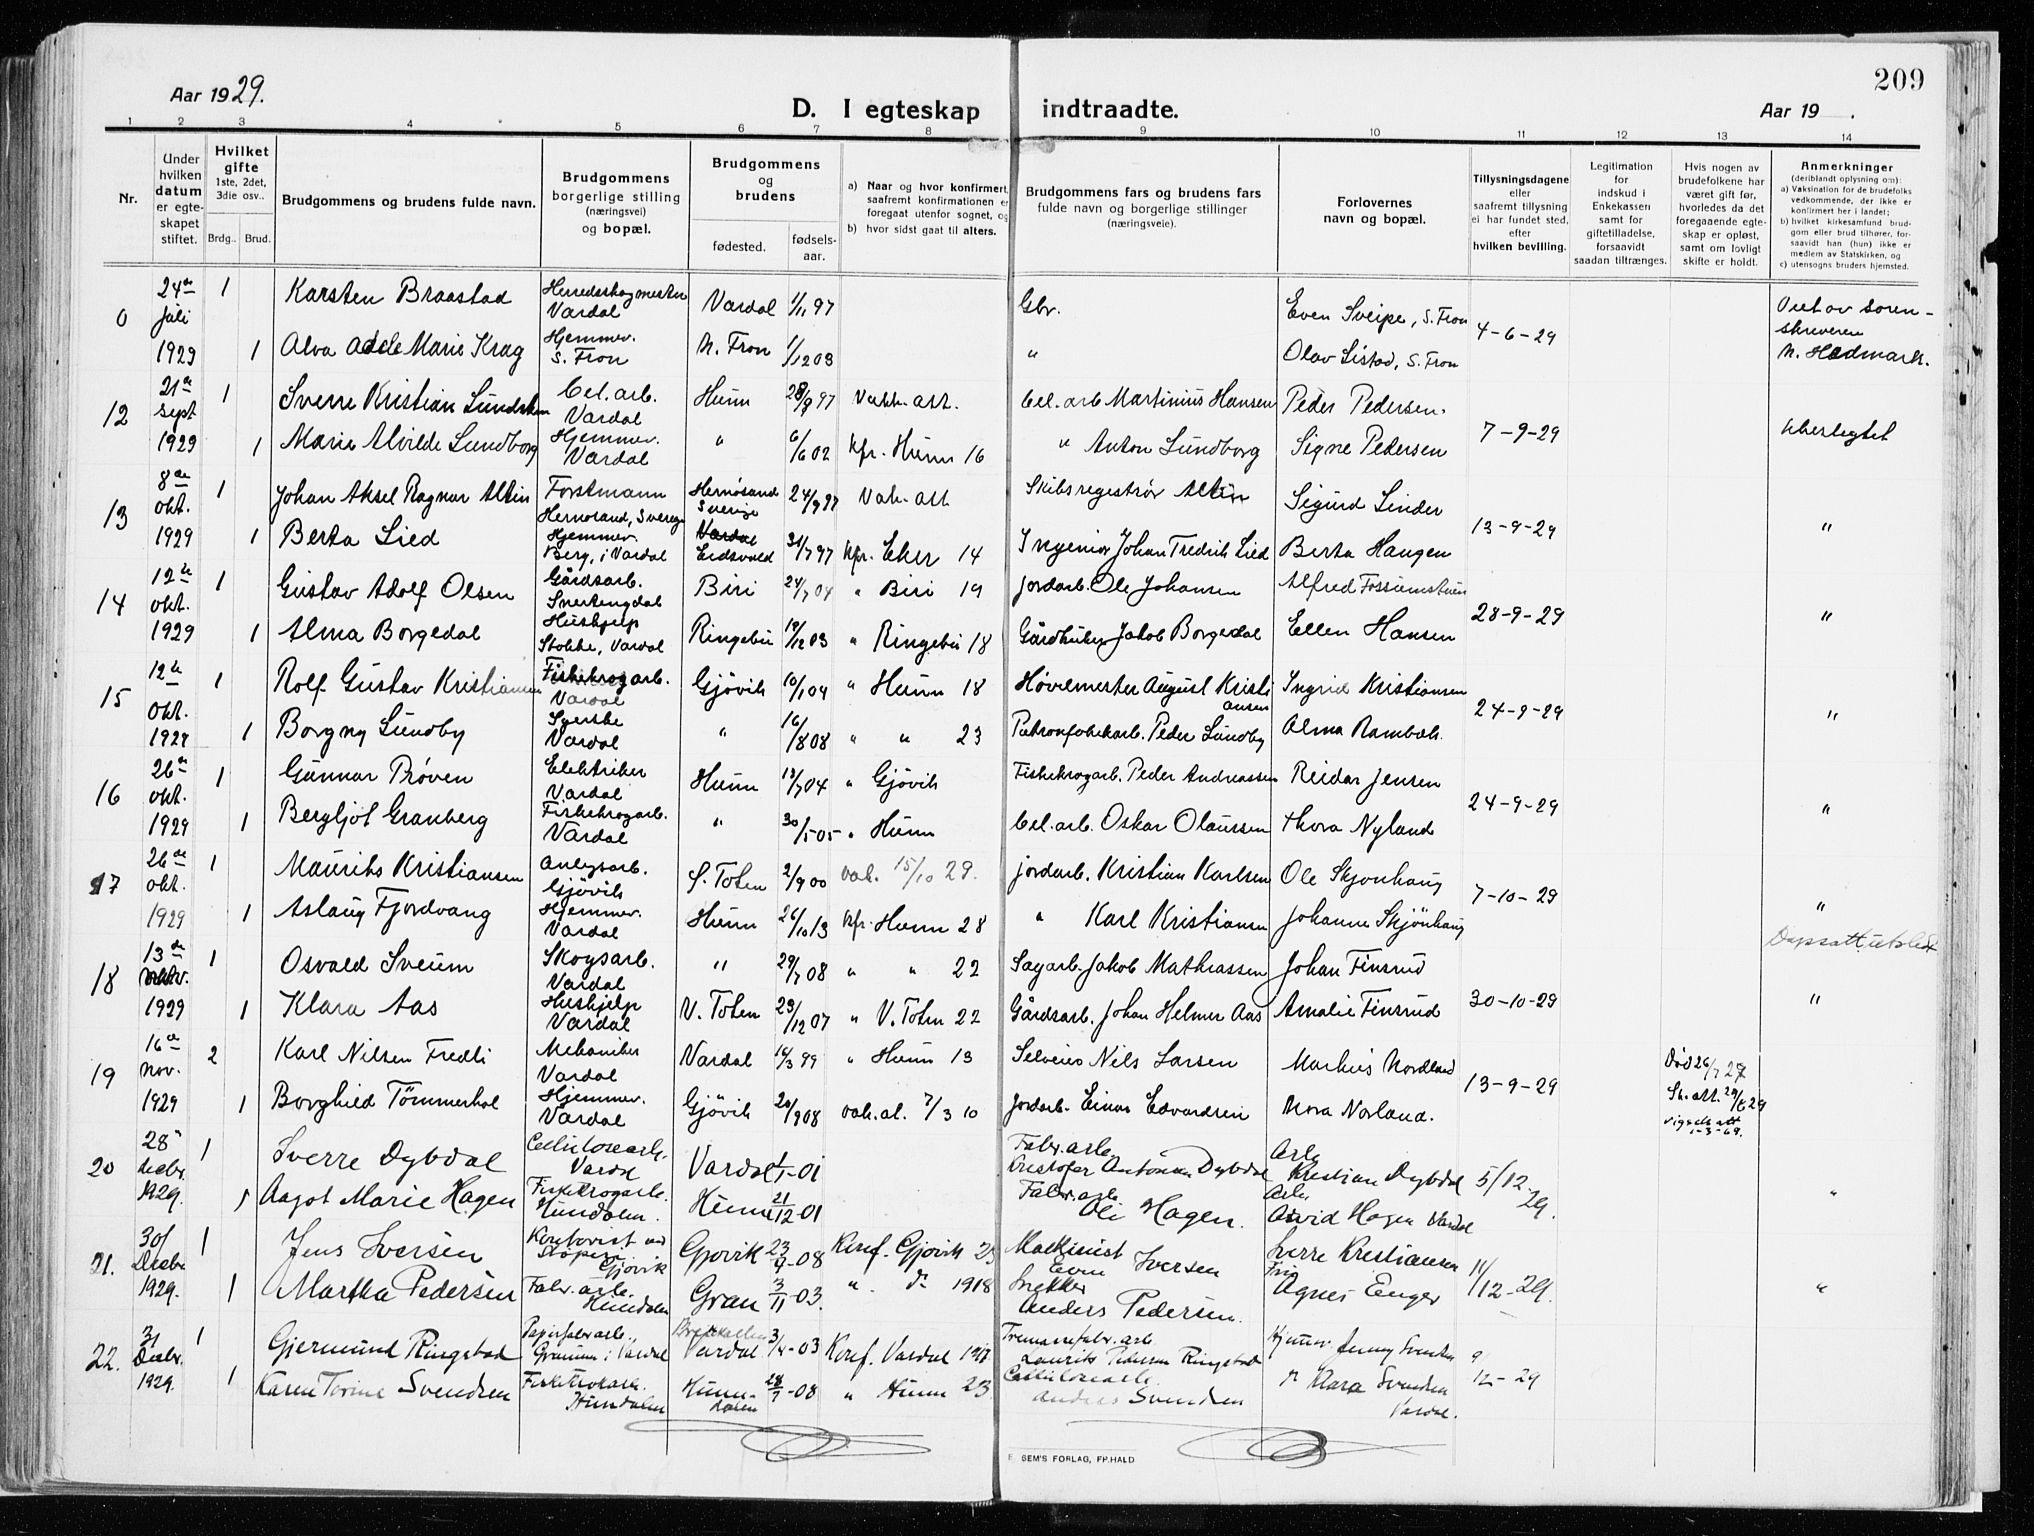 209
Aar 1929.
D. I egteskap indtraadte.
Aar 19 .
1 2 3 4 5 6 7 8 9 10 11 12 13 14
Nr.
Under hvilken datum er egteskapet stiftet.
Hvilket gifte 1ste, 2det, 3die osv..
Brdg.. Brud.
Brudgommens og brudens fulde navn.
Brudgommens borgerlige stilling (næringsvei) og bopæl.
Brudgommens og brudens
fødested. fødselsaar.
a) Naar og hvor konfirmert, saafremt konfirmationen er foregaat utenfor sognet, og
b) hvor sidst gaat til alters.
Brudgommens fars og brudens fars fulde navn og borgerlige stillinger (næringsveie).
Forlovernes navn og bopæl.
Tillysningsdagene eller saafremt tillysning ei har fundet sted, efter hvilken bevilling.
Legitimation for indskud i Enkekassen samt for giftetilladelse, forsaavidt saadan tiltrænges.
Hvis nogen av brudefolkene har været gift før, hvorledes da det foregaaende egteskap er opløst, samt om lovligt skifte er holdt.
Anmerkninger (deriblandt oplysning om): a) Vaksination for de brudefolks vedkommende, der ikke er konfirmert her i landet; b) hvilket kirkesamfund brudgom eller brud tilhører, forsaavidt han (hun) ikke er medlem av Statskirken, og c) utensogns bruders hjemsted.
0 24de Juli 1929 1 Karsten Braastad Herredsskogmester Vardal Vardal 1/11 97 Gbr. Even Sveipe, S. Fron 4-6-29 Viet av sorenskriveren N. Hedmark.
1 Alva Adele Marie Krag Hjemmev. S. Fron N. Fron 1/12 03 " Olav Listad, S. Fron
12 21de sept 1929 1 Sverre Kristian Lundsten Cel. arb. Vardal Hunn 28/9 97 Vakk. att. Cel. arb Martinius Hansen Peder Pedersen. 7-9-29
1 Marie Alvilde Lundborg Hjemmev. Vardal " 6/6 02 kfr. Hunn 16 " Anton Lundborg Signe Pedersen
13 8de okt. 1929 1 Johan Aksel Ragnar Altin Forstmann Hernösand, Sverige Hernösand Sverige 24/9 97 Vak. att Skibsregiströr Altin Sigurd Linder 13-9-29 "
1 Berta Lied Hjemmev. Berg, i Vardal Eidsvold 31/7 97 kfr. Eker 14 Ingeniör Johan Fredrik Lied Berta Haugen
14 12te okt. 1929 1 Gustav Adolf Olsen Gårdsarb. Snertingdal Biri 24/7 04 " Biri 19 Jordarb. Ole Johansen Alfred Fossumstuen 28-9-29 "
1 Alma Borgedal Hushjelp Stokke, Vardal Ringebu 19/12 03 " Ringebu 18 Gårdbruker Jakob Borgedal Ellen Hansen
15 12te Okt. 1929 1 Rolf Gustav Kristiansen Fiskekrogarb. Vardal Gjövik 10/1 04 " Hunn 18 Hövlemester August Kristiansen Ingrid Kristiansen 24-9-29 "
1 Borgny Lundby Syerske Vardal " 16/8 08 " " 23 Patronfabrikarb. Peder Lundby Alma Rambæk.
16 26de okt. 1929 1 Gunnar Pröven Elektriker Vardal Hunn 13/7 04 " Gjövik Fiskekrogarb. Peder Andreassen Reidar Jensen 24-9-29 "
1 Bergljot Granberg Fiskekrogarb. Vardal " 30/5 05 " Hunn Cel. arb. Oskar Olaussen Thora Nyland
17 26de okt. 1929 1 Maurits Kristiansen Anlegsarb. Gjövik S. Toten 2/9 00 vak. 15/10 29. Jordarb. Kristian Karlsen Ole Skjonhaug 7-10-29 "
1 Aslaug Fjordvang Hjemmev. Vardal Hunn 26/10 13 kfr. Hunn 28 " Karl Kristiansen Johanne Skjönhaug
18 13de 1929 1 Osvald Sveum Skogsarb. Vardal " 29/7 08 " " 22 Sagarb. Jakob Mathiassen Johan Finsrud 30-10-29 "
1 Klara Aas Hushjelp Vardal V. Toten 29/12 07 " V. Toten 22 Gårdsarb. Johan Helmer Aas Amalie Finsrud
19 16de nov. 1929 2 Karl Nilsen Fredli Mekaniker Vardal Vardal 16/3 99 " Hunn 13 Selveier Nils Larsen Markus Nordland 13-9-29 Död 26/7 27
1 Borghild Tömmerhol Hjemmev. Vardal Gjövik 20/9 08 vak. at. 7/3 10 Jordarb. Einar Edvardsen Nora Norland. Sk. att. 29/8 29 vigselsatt 1-3-69.
20 28 Decbr 1929. 1 Sverre Dybdal Cellulosearb. Vardal Vardal 1/1-01 Fabr. arb. Kristofer Antonsen Dybdal Arb. Kristian Dybdal 5/12-29. "
1 Aagot Marie Hagen Fiskekrogarb. Hundalen. Hunn 21/12-01 Fabr. arb. Ole Hagen. Arb. Arvid Hagen Vardal
21. 30/ Decbr 1929. 1 Jens Iversen Kontorist ved Stöperi Gjövik Gjövik 23/9-08 Konf. Gjövik 23 Maskinist Even Iversen Sverre Kristiansen 11/12-29. "
1 Martha Pedersen Fabr. arb. Hundalen Gran 3/11-03. " do 1918 Snekker Anders Pedersen. Frk Agnes Enger
22. 31 Decbr. 1929. 1 Gjermund Ringstad Papirfabr arb., Grauum i Vardal Vardal 3/4-03 Konf. Vardal 1917 Trevarefabr. arb. Laurits Pedersen Ringstad Hjemmev. Jenny Svendsen 9/12-29
1 Karen Torine Svendsen Fiskekrokarb. Hundalen Hunndalen 28/7-08 " Hunn 23 Cellulosearb. Anders Svendsen " Klara Svendsen Vardal.
E SEM'S FORLAG, FR.HALD